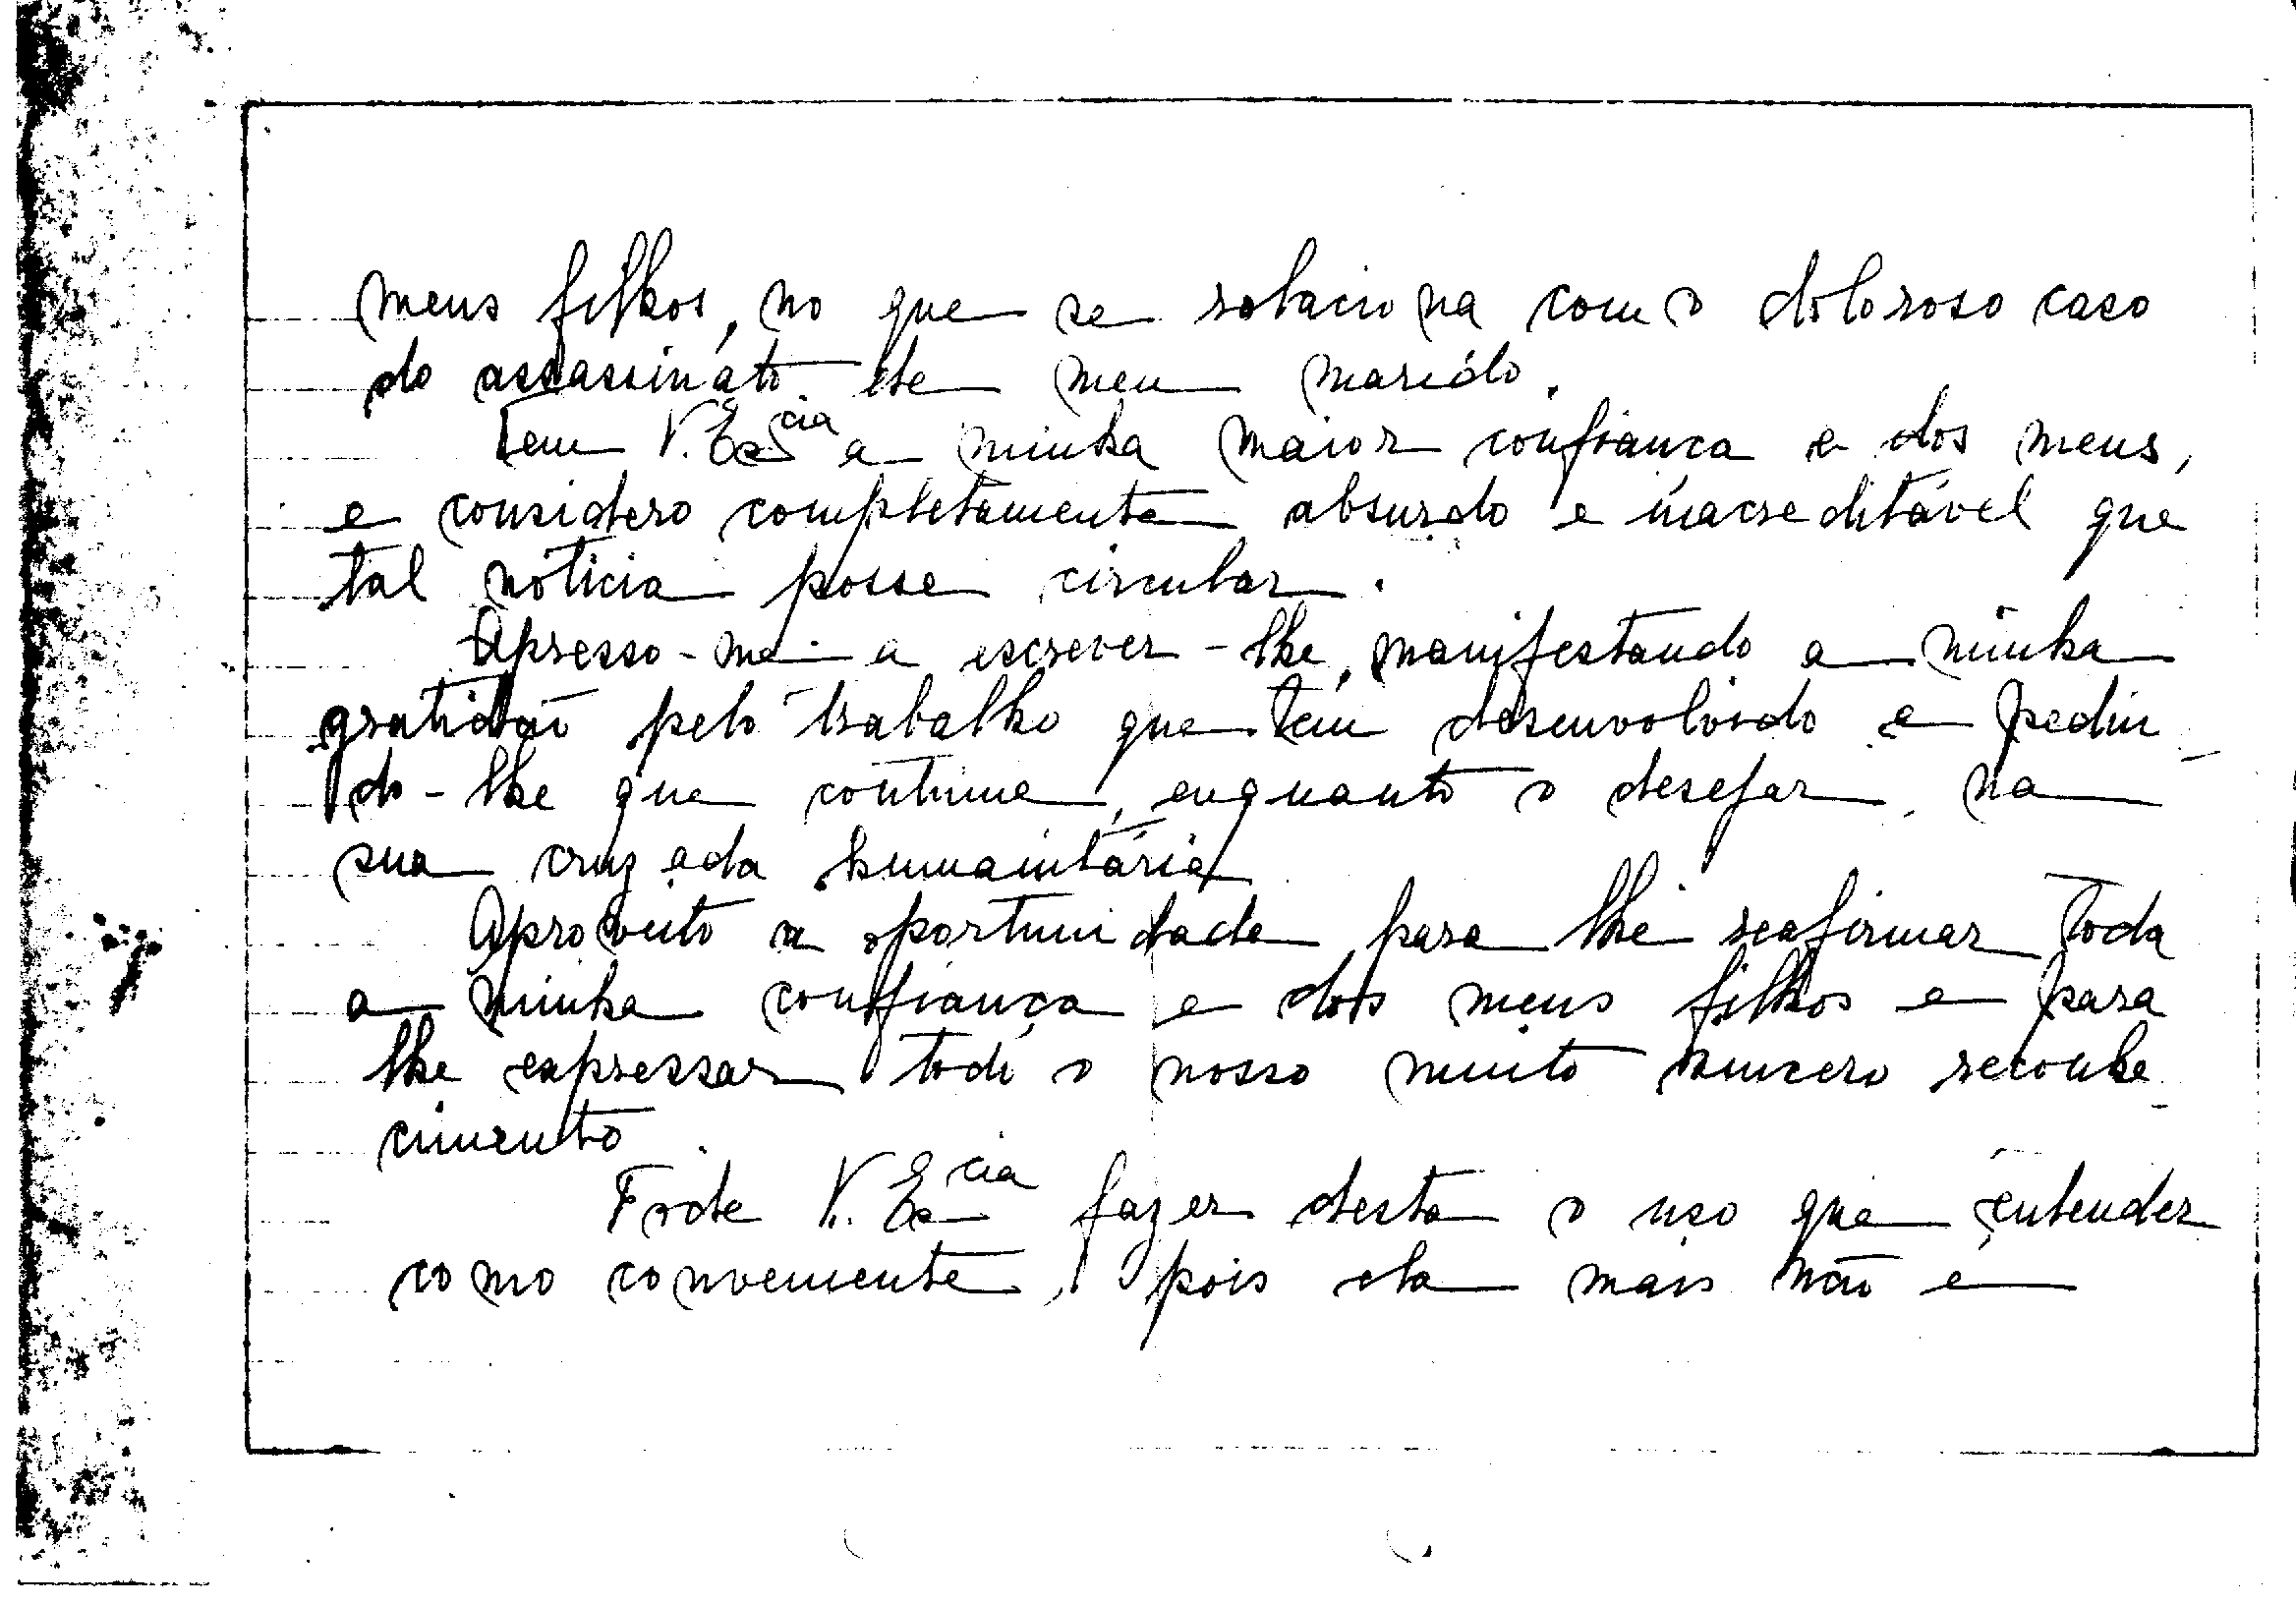 meus filhos, no que se relaciona com o doloroso caso
do assassinato de meu marido.
Tem V. Ex.cia a minha maior confiança e dos meus,
e considero completamente absurdo e inacreditável que
tal noticia posse circular.
Apresso-me a escrever-lhe, manifestando a minha
gratidão pelo trabalho que tem desenvolvido e pedin-
do-lhe que continue, enquanto o desejar, na
sua cruzada humanitária
Aproveito a oportunidade para lhe reafirmar toda
a minha confiança e dos meus filhos e para
lhe expressar todo o nosso muito sincero reconhe-
cimento.
Pode V. Ex.cia fazer desta o uso que entender
como conveniente, pois ela mais não é